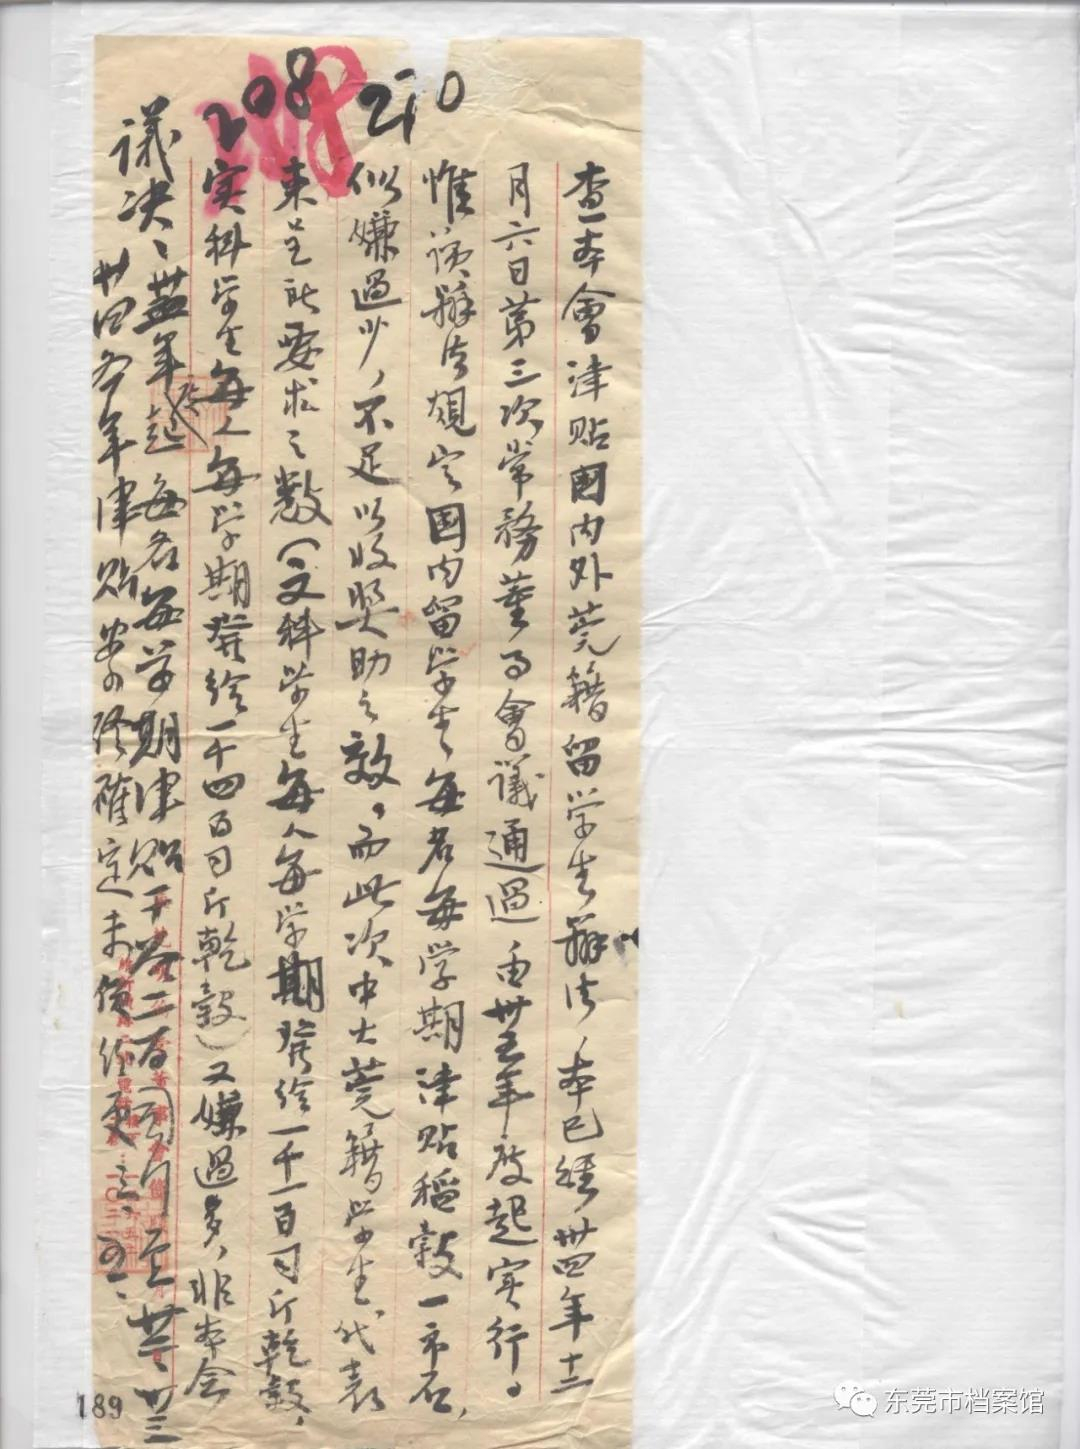 208 210
查本會津贴國内外莞籍留学生辦法，本已經卅四年十二
月六日第三次常務董事會議通過由卅五年度起实行。
惟该辦法規定国内留学生每名每学期津贴稻穀一市石，
似嫌過少，不足以收奨助之效，而此次中大莞籍学生代表
来呈所要求之数（文科学生每人每学期發给一千一百司斤乾穀，
实科学生每人每学期發给一千四百司斤乾穀）又嫌過多，非本会
议决、年起每名每学期津贴二百司斤
卅四各年津贴 確定未便 更
189
东莞市档案馆